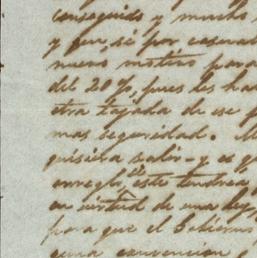 conseguido y mucho
y que, sé por
nuevo motivo para
del 20 %, pues les ha
otra tajada de ese
mas seguridad.
quisiera salir – y es q
arreglo, este tendria
en virtud de una ley,
para que el Gobierno
una convencion